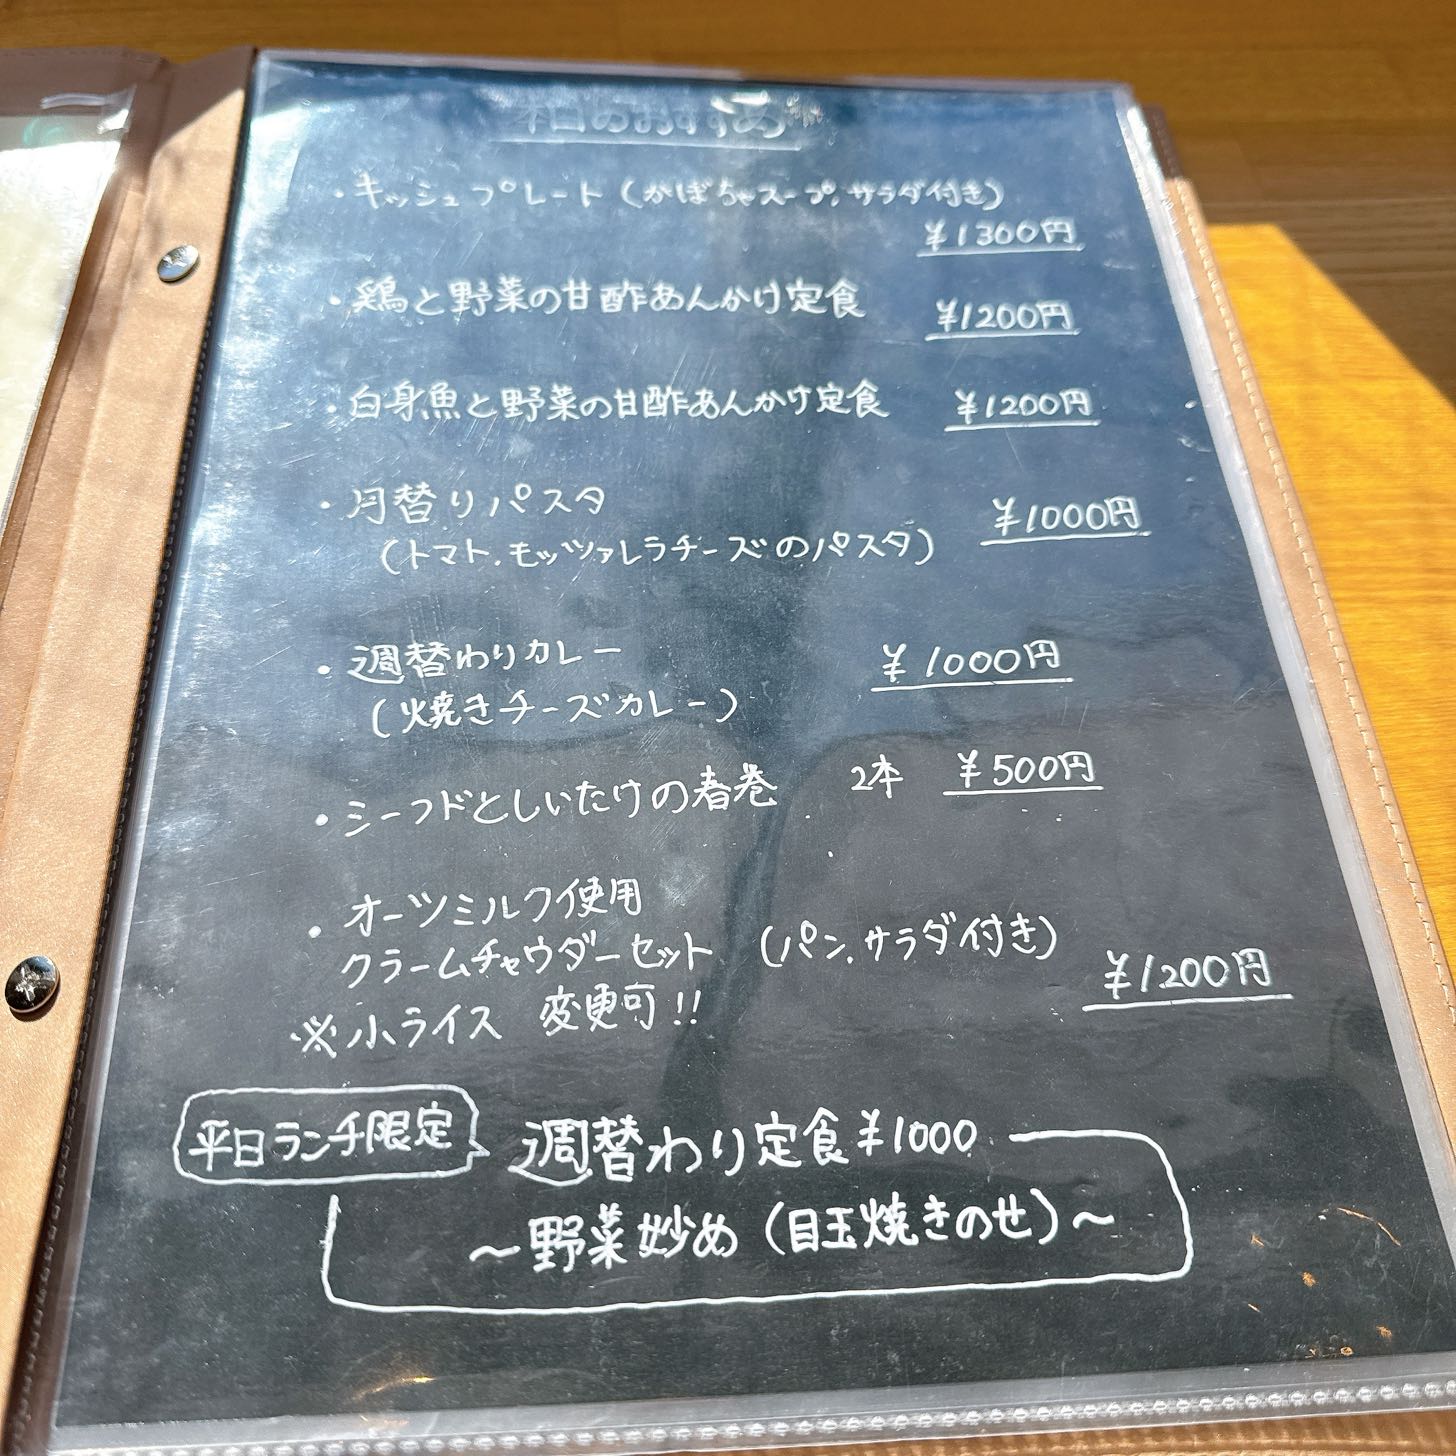 本日のおすすめ
・キッシュプレート(かぼちゃスープ,サラダ付き)
¥1300円
・鶏と野菜の甘酢あんかけ定食 ¥1200円
・白身魚と野菜の甘酢あんかけ定食 ¥1200円
・月替りパスタ ¥1000円
(トマト,モッツァレラチーズのパスタ)
・週替わりカレー ¥1000円
(焼きチーズカレー)
・シーフドとしいたけの春巻 2本 ¥500円
・オーツミルク使用
クラームチャウダーセット (パン,サラダ付き) ¥1200円
※小ライス 変更可!!
平日ランチ限定 週替わり定食¥1000
~野菜炒め(目玉焼きのせ)~